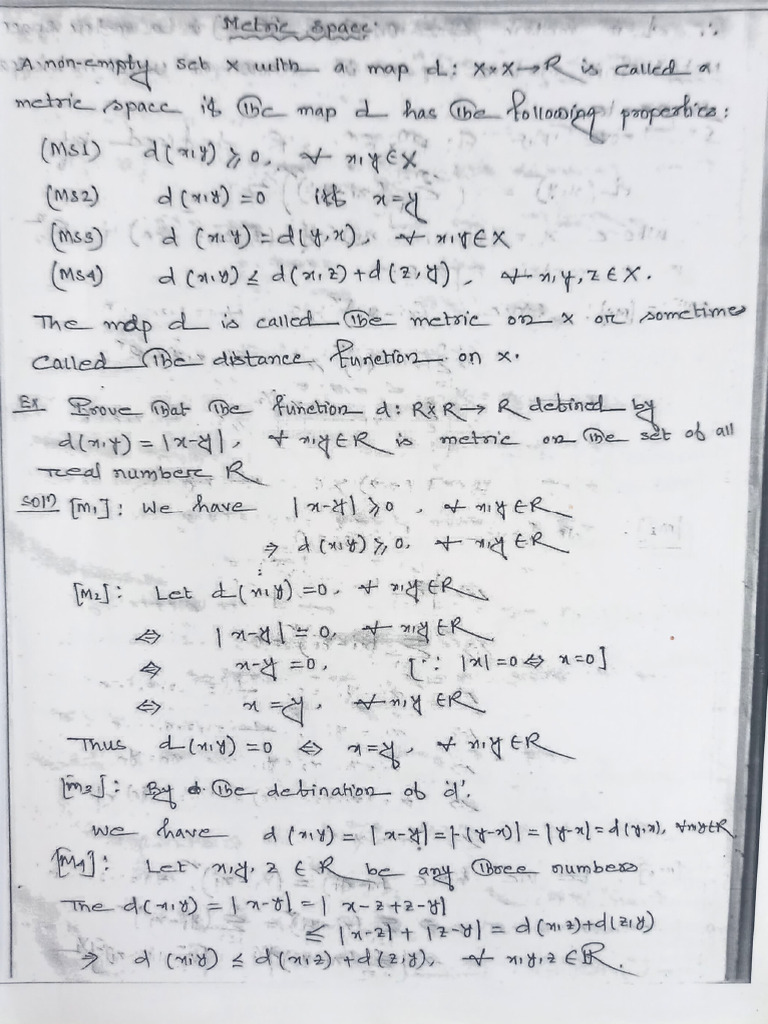 Metric Space:
A non-empty set x with a map d: X×X→R is called a
metric space if the map d has the following properties:
(MS1) d(x,y) ≥ 0, ∀ x,y ∈ X
(MS2) d(x,y) = 0 iff x=y
(MS3) d(x,y) = d(y,x), ∀ x,y ∈ X
(MS4) d(x,y) ≤ d(x,z) + d(z,y), ∀ x,y,z ∈ X.
The map d is called the metric on x or sometime
called the distance function on x.
Ex Prove that the function d: R×R → R defined by
d(x,y) = |x-y|, ∀ x,y ∈ R is metric on the set of all
real numbers R
Soln [M1]: We have |x-y| ≥ 0, ∀ x,y ∈ R
⇒ d(x,y) ≥ 0, ∀ x,y ∈ R
[M2]: Let d(x,y) = 0, ∀ x,y ∈ R
⇔ |x-y| = 0, ∀ x,y ∈ R
⇔ x-y = 0, [∵ |x| = 0 ⇔ x=0]
⇔ x = y, ∀ x,y ∈ R
Thus d(x,y) = 0 ⇔ x=y, ∀ x,y ∈ R
[M3]: By the defination of 'd'.
We have d(x,y) = |x-y| = |-(y-x)| = |y-x| = d(y,x), ∀ x,y ∈ R
[M4]: Let x,y,z ∈ R be any three numbers
The d(x,y) = |x-y| = |x-z+z-y|
≤ |x-z| + |z-y| = d(x,z)+d(z,y)
⇒ d(x,y) ≤ d(x,z) + d(z,y), ∀ x,y,z ∈ R.